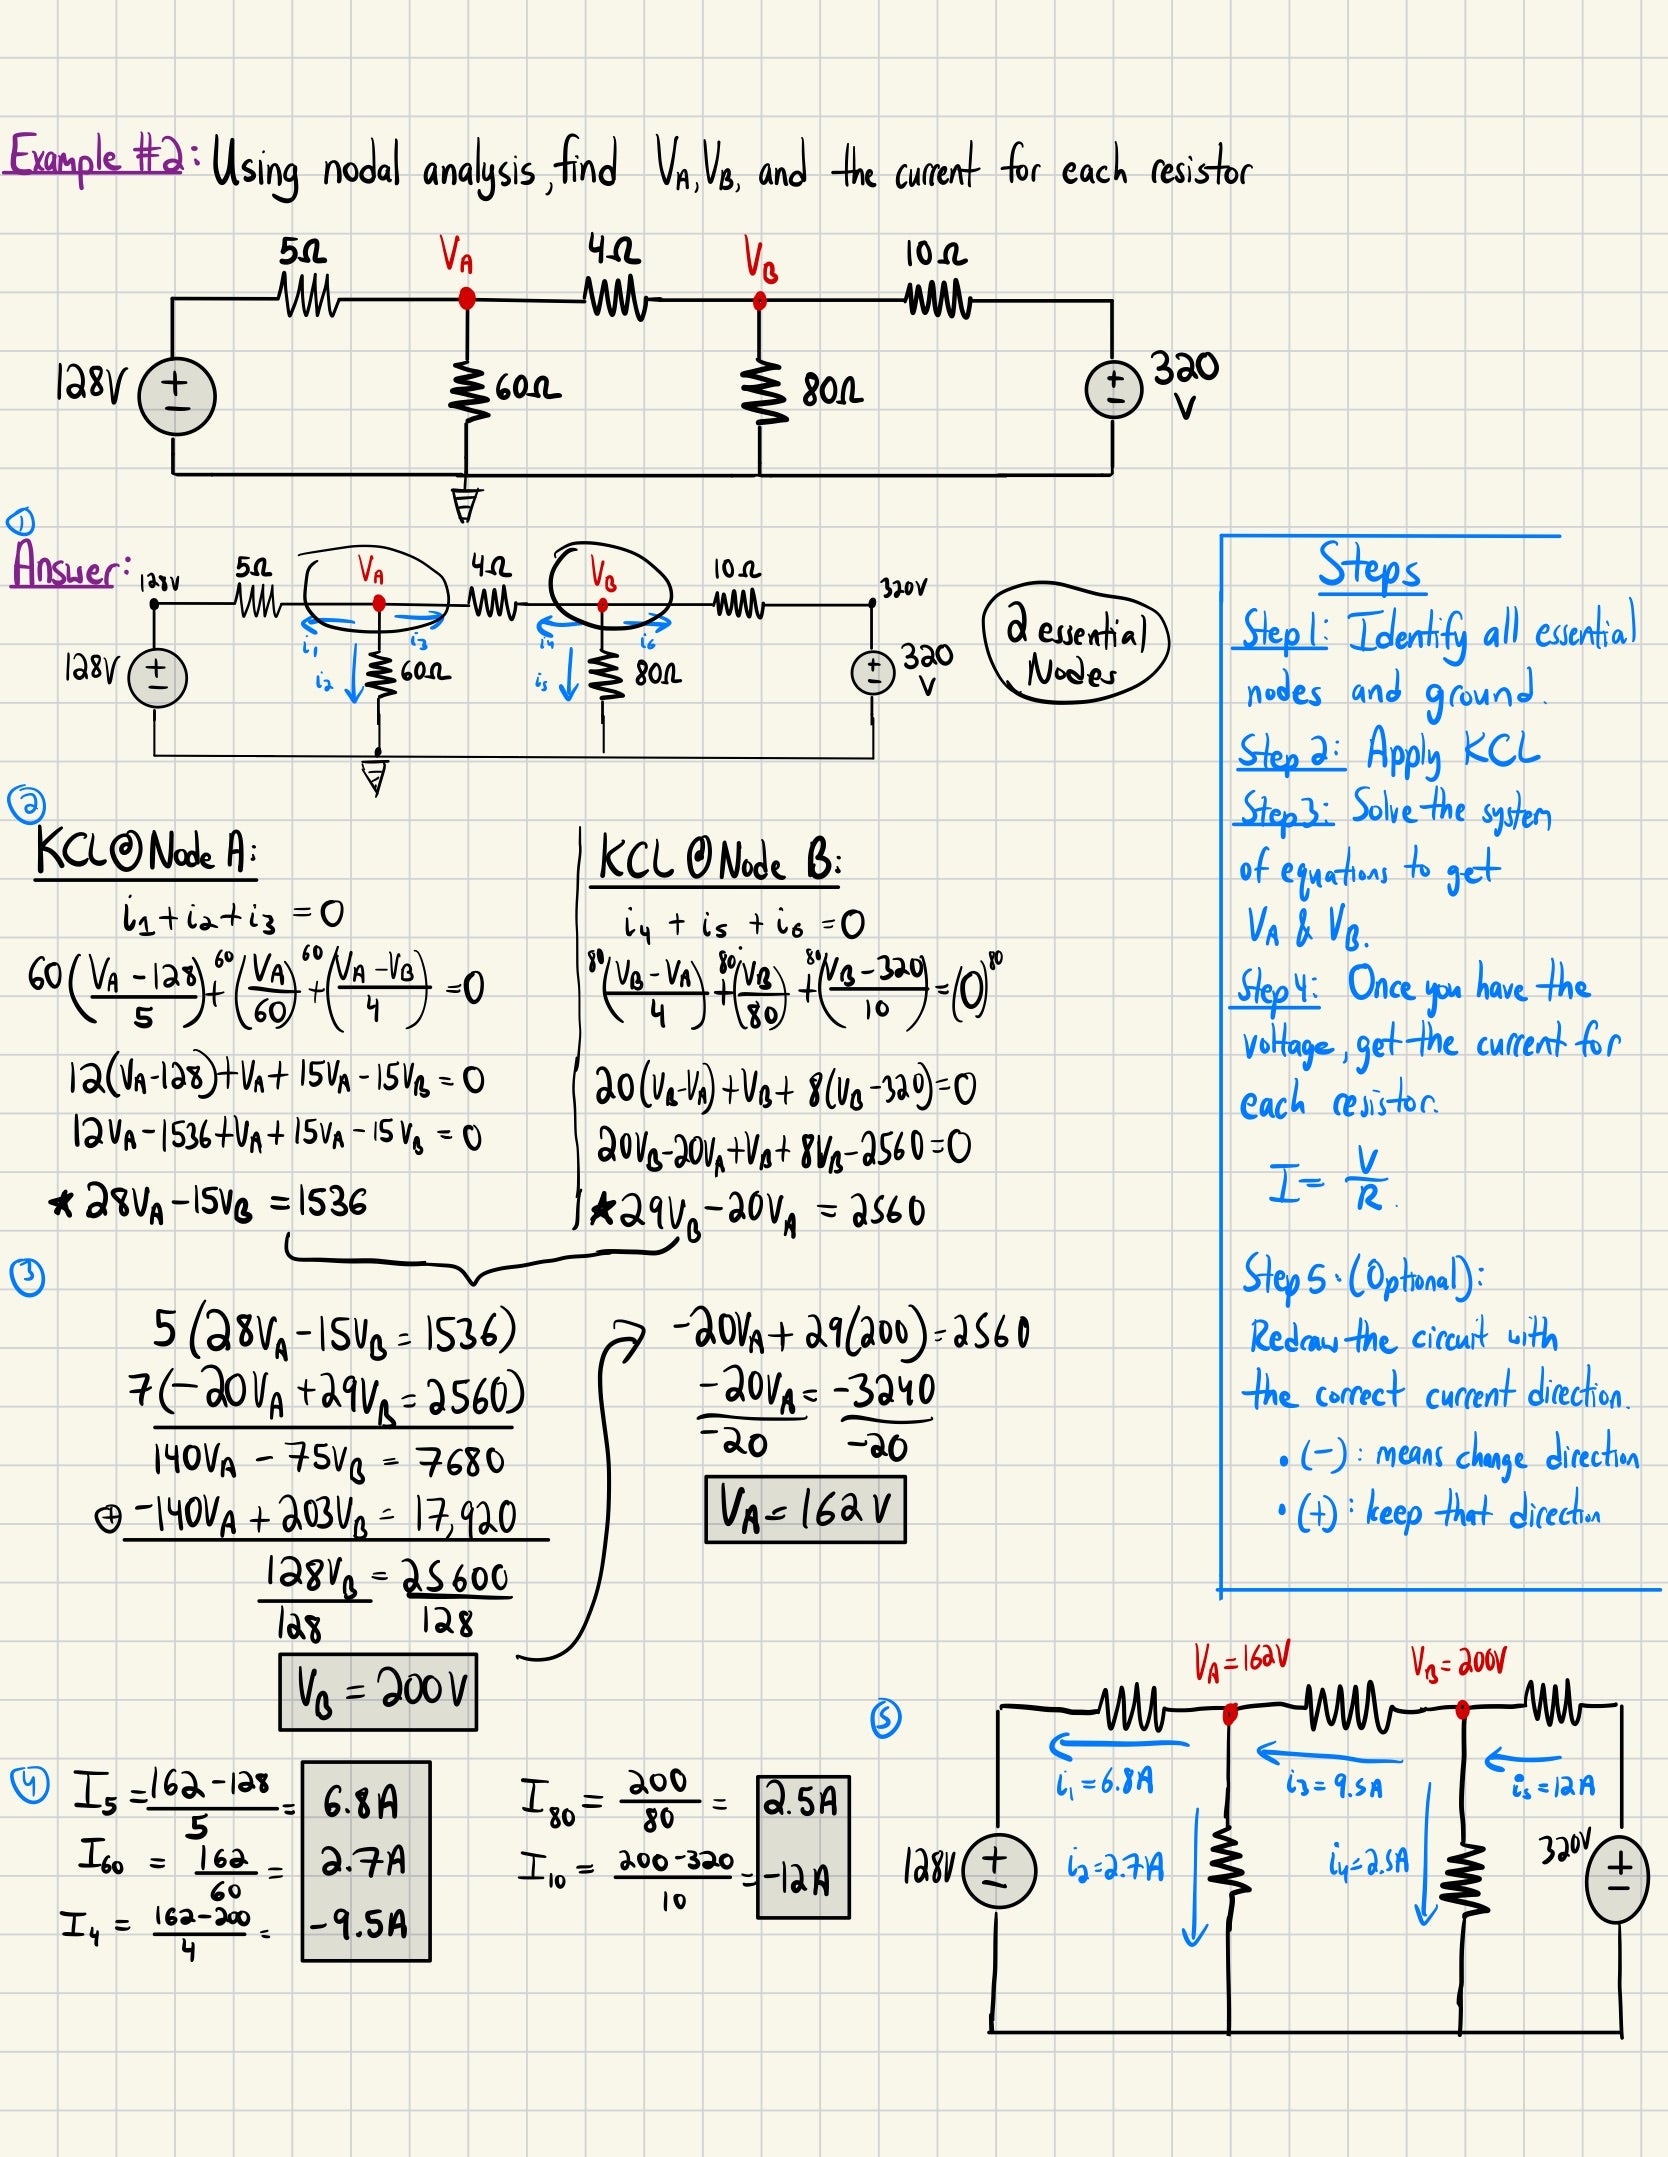 Example #2: Using nodal analysis, find VA, VB, and the current for each resistor
5Ω VA 4Ω VB 10Ω
128V + − 60Ω 80Ω + − 320 V
①
Answer:
128V 5Ω VA 4Ω VB 10Ω 320V
i1 i3 i4 i6
128V + − i2 60Ω i5 80Ω + − 320 V
2 essential Nodes
Steps
Step 1: Identify all essential
nodes and ground.
Step 2: Apply KCL
Step 3: Solve the system
of equations to get
VA & VB.
Step 4: Once you have the
voltage, get the current for
each resistor.
I = V/R.
Step 5. (Optional):
Redraw the circuit with
the correct current direction.
• (−): means change direction
• (+): keep that direction
②
KCL@Node A:
i1 + i2 + i3 = 0
60((VA − 128)/5) + 60(VA/60) + 60((VA − VB)/4) = 0
12(VA − 128) + VA + 15VA − 15VB = 0
12VA − 1536 + VA + 15VA − 15VB = 0
★ 28VA − 15VB = 1536
KCL@Node B:
i4 + i5 + i6 = 0
80((VB − VA)/4) + 80(VB/80) + 80((VB − 320)/10) = (0)80
20(VB − VA) + VB + 8(VB − 320) = 0
20VB − 20VA + VB + 8VB − 2560 = 0
★ 29VB − 20VA = 2560
③
5(28VA − 15VB = 1536)
7(−20VA + 29VB = 2560)
140VA − 75VB = 7680
⊕ −140VA + 203VB = 17,920
128VB/128 = 25600/128
VB = 200V
−20VA + 29(200) = 2560
−20VA/−20 = −3240/−20
VA = 162V
④
I5 = (162 − 128)/5 = 6.8A
I60 = 162/60 = 2.7A
I4 = (162 − 200)/4 = −9.5A
I80 = 200/80 = 2.5A
I10 = (200 − 320)/10 = −12A
⑤
VA = 162V VB = 200V
i1 = 6.8A i3 = 9.5A i5 = 12A
128V + − i2 = 2.7A i4 = 2.5A 320V + −